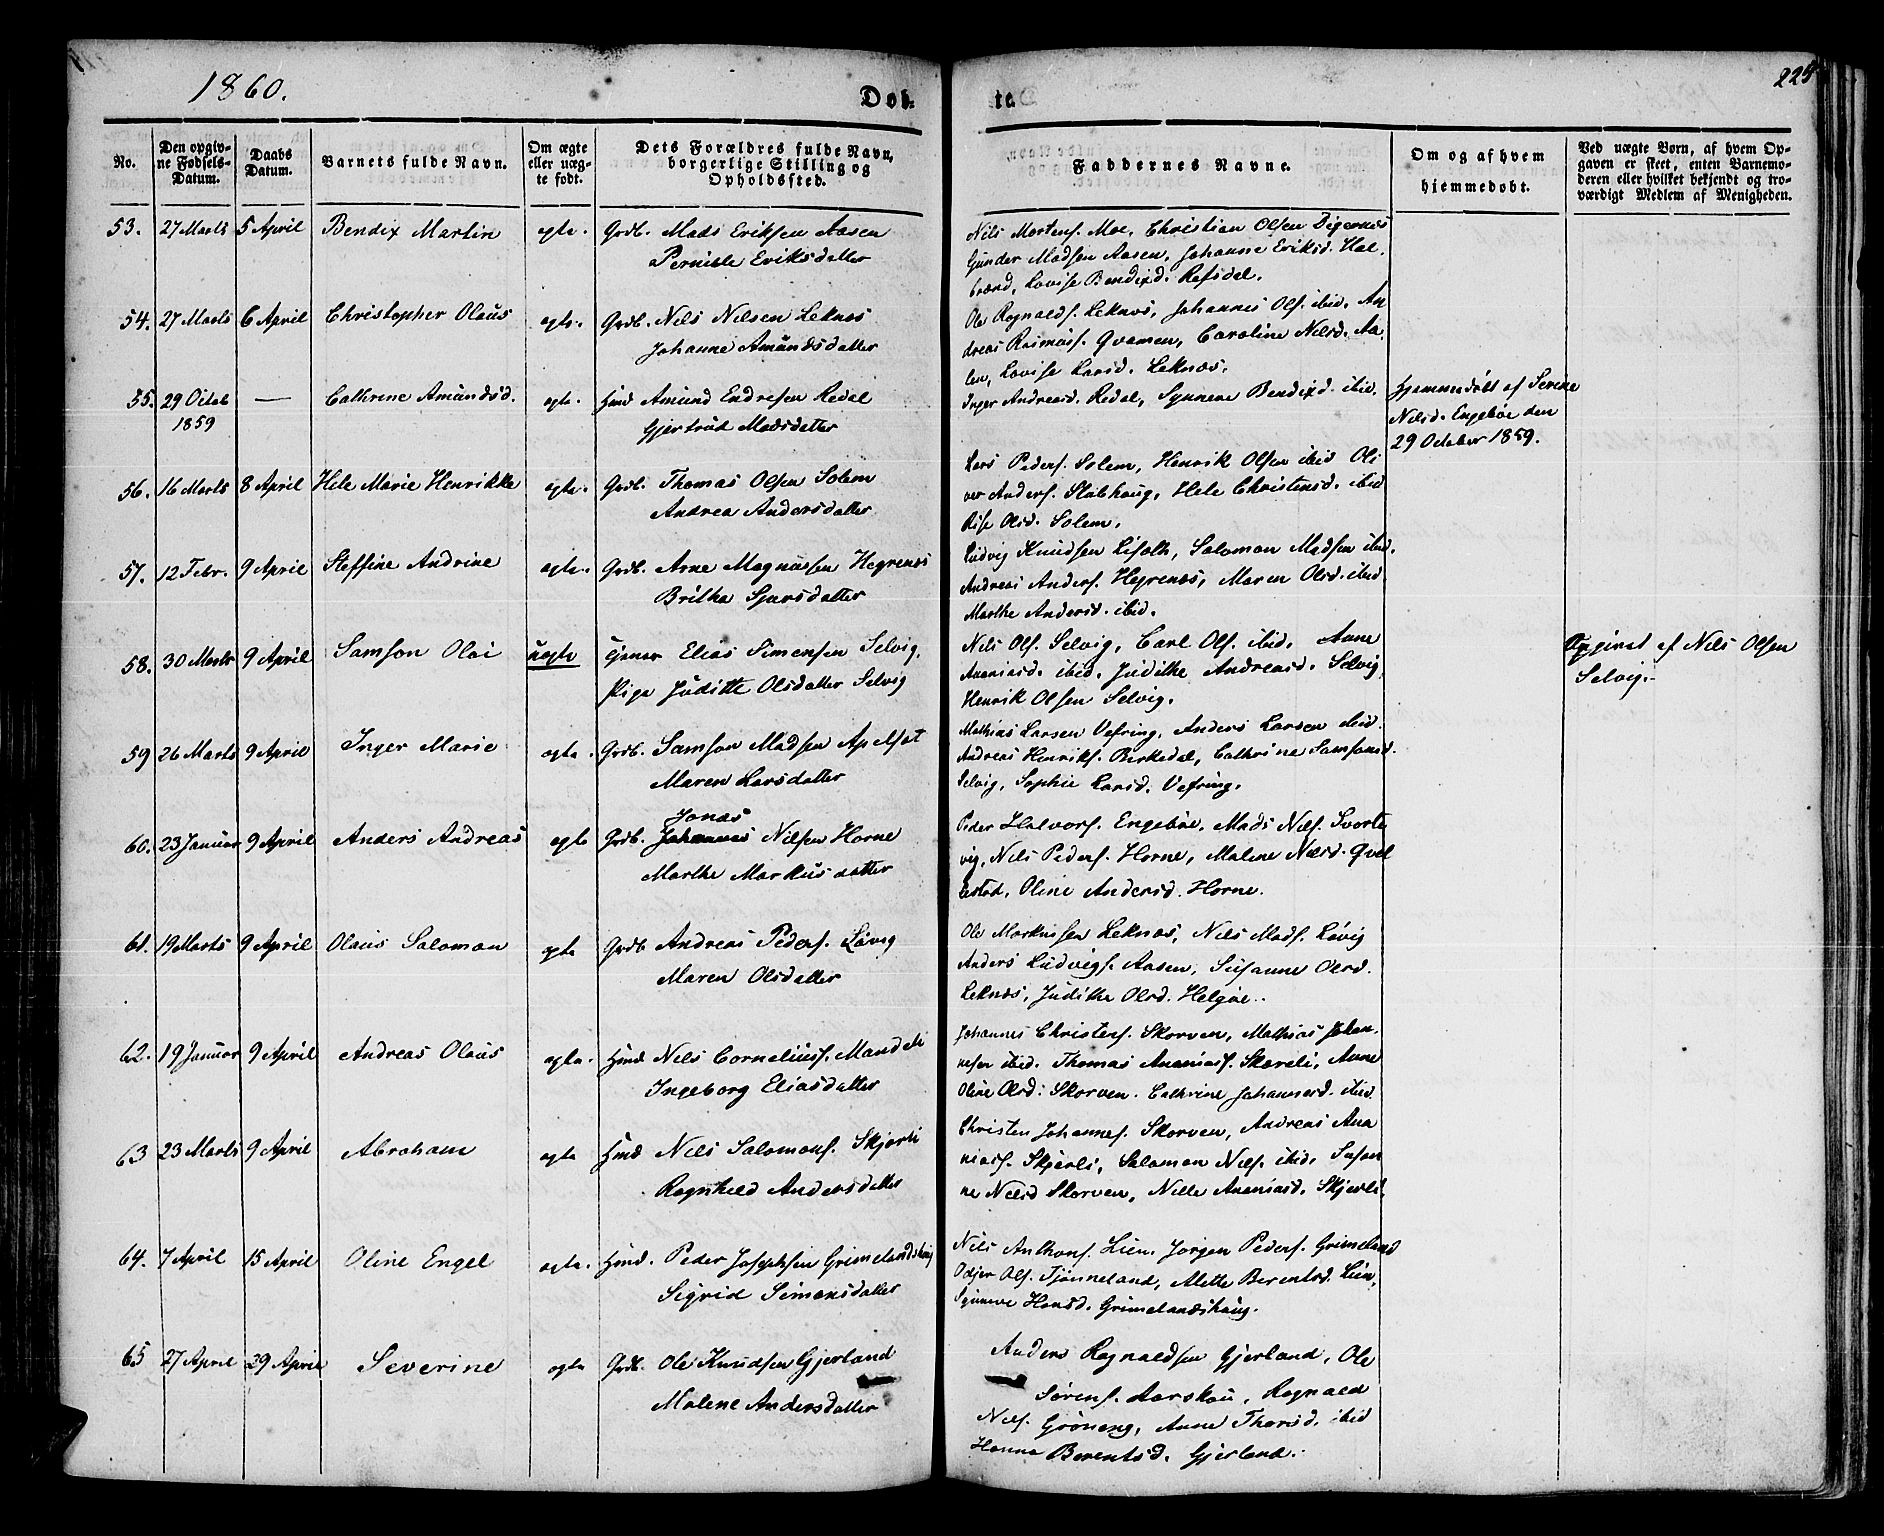 1860.
Døb-
te.
225
No.
Den opgiv-
ne Fødsels-
Datum.
Daabs
Datum.
Barnets fulde Navn.
Om ægte
eller uæg-
te født.
Dets Forældres fulde Navn,
borgerlige Stilling og
Opholdssted.
Faddernes Navne.
Om og af hvem
hjemmedøbt.
Ved uægte Børn, af hvem Op-
gaven er skeet, enten Barnemo-
deren eller hvilket bekjendt og tro-
værdigt Medlem af Menigheden.
53. 27 Marts 5 April Bendix Martin ægte. Grdb. Mads Eriksen Aasen
Pernille Eriksdatter
Nils Mortens. Moe, Christian Olsen Digernæs
Gunder Madsen Aasen, Johanne Eriksd. Hal-
brænd, Lovise Bendixd. Refsdal.
54. 27 Marts 6 April Christopher Olaus ægte. Grdb. Nils Nilsen Leknæs
Johanne Amundsdatter
Ole Rognalds. Leknæs, Johannes Ols. ibid. An
dreas Rasmus. Qvamen, Caroline Nilsd. Aa-
len, Lovise Larsd. Leknæs.
55. 29 Octob 1859 — Cathrine Amundsd. ægte. Hmd Amund Endresen Redal
Gjertrud Madsdatter
Inger Andreasd. Redal, Synneve Bendixd. ibid.
Hjemmedøbt af Serine
Nilsd. Engebøe den
29 October 1859.
56. 16 Marts 8 April Hele Marie Henrikke ægte. Grdb. Thomas Olsen Solem
Andrea Andersdatter
Lars Peders. Solem, Henrik Olsen ibid Oli
ver Anders. Stølshaug, Hele Christensd. ibid
Olsd. Solem.
57. 12 Febr. 9 April Steffine Andrine ægte. Grdb. Arne Magnussen Hegrenæs
Britha Sjursdatter
Ludvig Knudsen Lisæth, Salomon Madsen ibid.
Andreas Anders. Hegrenæs, Maren Olsd. ibid.
Marthe Andersd. ibid.
58. 30 Marts 9 April Samson Olai uægte Tjener Elias Simensen Selvig,
Pige Juditte Olsdatter Selvig
Nils Ols. Selvig, Carl Ols. ibid. Anne
Ananiasd. ibid. Judithe Andreasd. Selvig
Henrik Olsen Selvig.
Opgivet af Nils Olsen
Selvig.
59 26 Marts 9 April Inger Marie ægte. Grdb. Samson Madsen
Maren Larsdatter
Mathias Larsen Vefring, Anders Larsen ibid.
Andreas Henriks. Birkedal, Cathrine Samsonsd.
Selvig, Sophie Larsd. Vefring.
60. 23 Januar 9 April Anders Andreas ægte Grdb. Johannes Jonas Nilsen Horne
Marthe Markusdatter
Peder Halvors. Engebøe. Mads Nils. Svorte
vig, Nils Peders. Horne, Malene Nilsd. Qvel
lestad, Oline Andersd. Horne.
61. 19 Marts 9 April Olaus Salomon ægte Grdb. Andreas Peders. Løvig
Maren Olsdatter
Ole Markussen Leknæs, Nils Mads. Løvig
Anders Ludvigs. Aasen, Susanne Olsd.
Leknæs, Judithe Olsd. Helgøe.
62. 19 Januar 9 April Andreas Olaus ægte. Hmd Nils Cornelius. Mandeli
Ingeborg Eliasdatter
Johannes Christens. Skorven, Mathias Johan-
nesen ibid. Thomas Ananias. Skæreli, Anne
Oline Olsd: Skorven. Cathrine Johannesd. ibid
63 23 Marts 9 April Abraham ægte Hmd Nils Salomons. Skjerli
Ragnhild Andersdatter
Christen Johannes. Skorven, Andreas Ana
nias. Skjerli, Salomon Nils. ibid, Susan
ne Nilsd Skorven, Nille Ananiasd. Skjerli.
64. 7 April 15 April Oline Engel ægte. Hmd. Peder Josephsen Grimelandshaug
Sigrid Simensdatter
Nils Anthons. Lien. Jørgen Peders. Grimeland
Odjer Ols. Tjønneland, Mette Berentsd. Lien,
Synneve Hansd. Grimelandshaug.
65 27 April 29 April Severine ægte Grdb. Ole Knudsen Gjerland
Malene Andersdatter
Anders Rognaldsen Gjerland, Ole
Sørens. Aarskou, Rognald
Nils. Grøneng, Anne Thorsd. ibid
Hanna Berentsd. Gjerland.